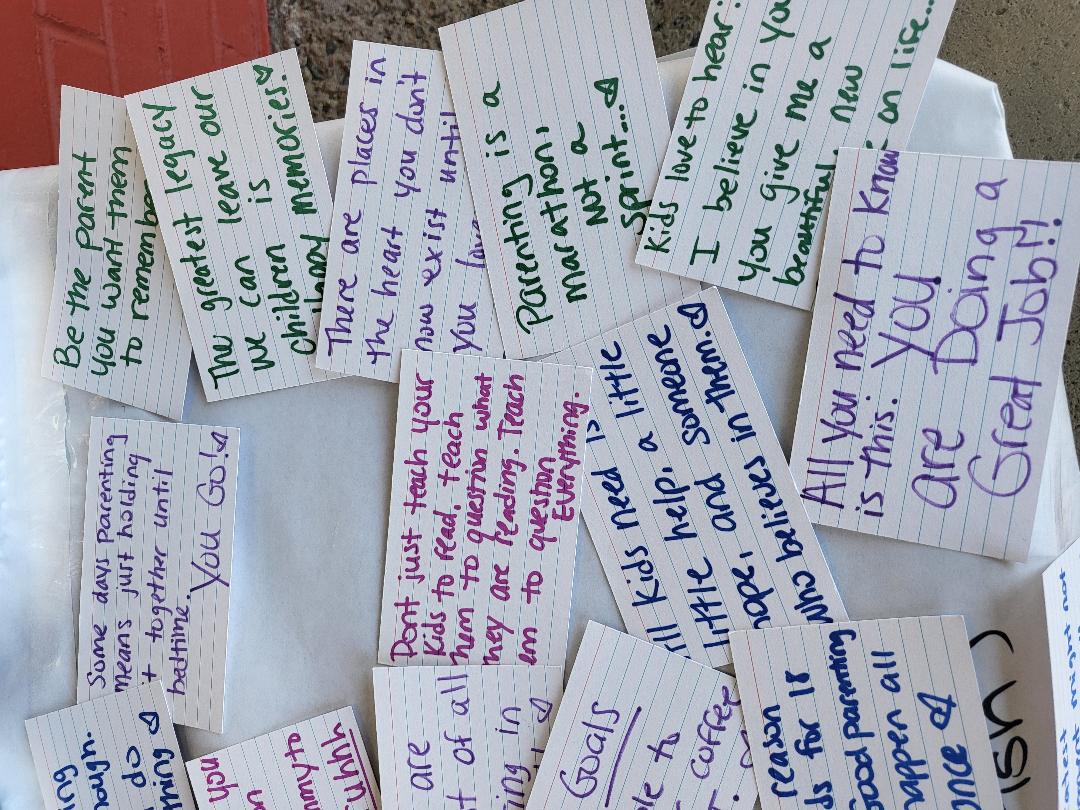 Be the parent
you want them
to remember
The greatest legacy
we can leave our
children is
happy memories.
There are places in
the heart you don't
now exist until
you love
Parenting is a
marathon,
not a
sprint...
Kids love to hear:
I believe in you
you give me a
beautiful, new
on life...
All you need to know
is this. You
are Doing a
Great Job!!
Some days parenting
means just holding
+ together until
bedtime.
You Go!
Dont just teach your
kids to read, teach
hem to question what
hey are reading. Teach
em to question
Everything.
ll kids need is
little help, a little
hope, and someone
who believes in them.
ing
nough.
do
ming
you
mmy to
uhhh
are
t of all
ing in
Goals
le to
coffee
reason
ds for 18
good parenting
appen all
once
ish)